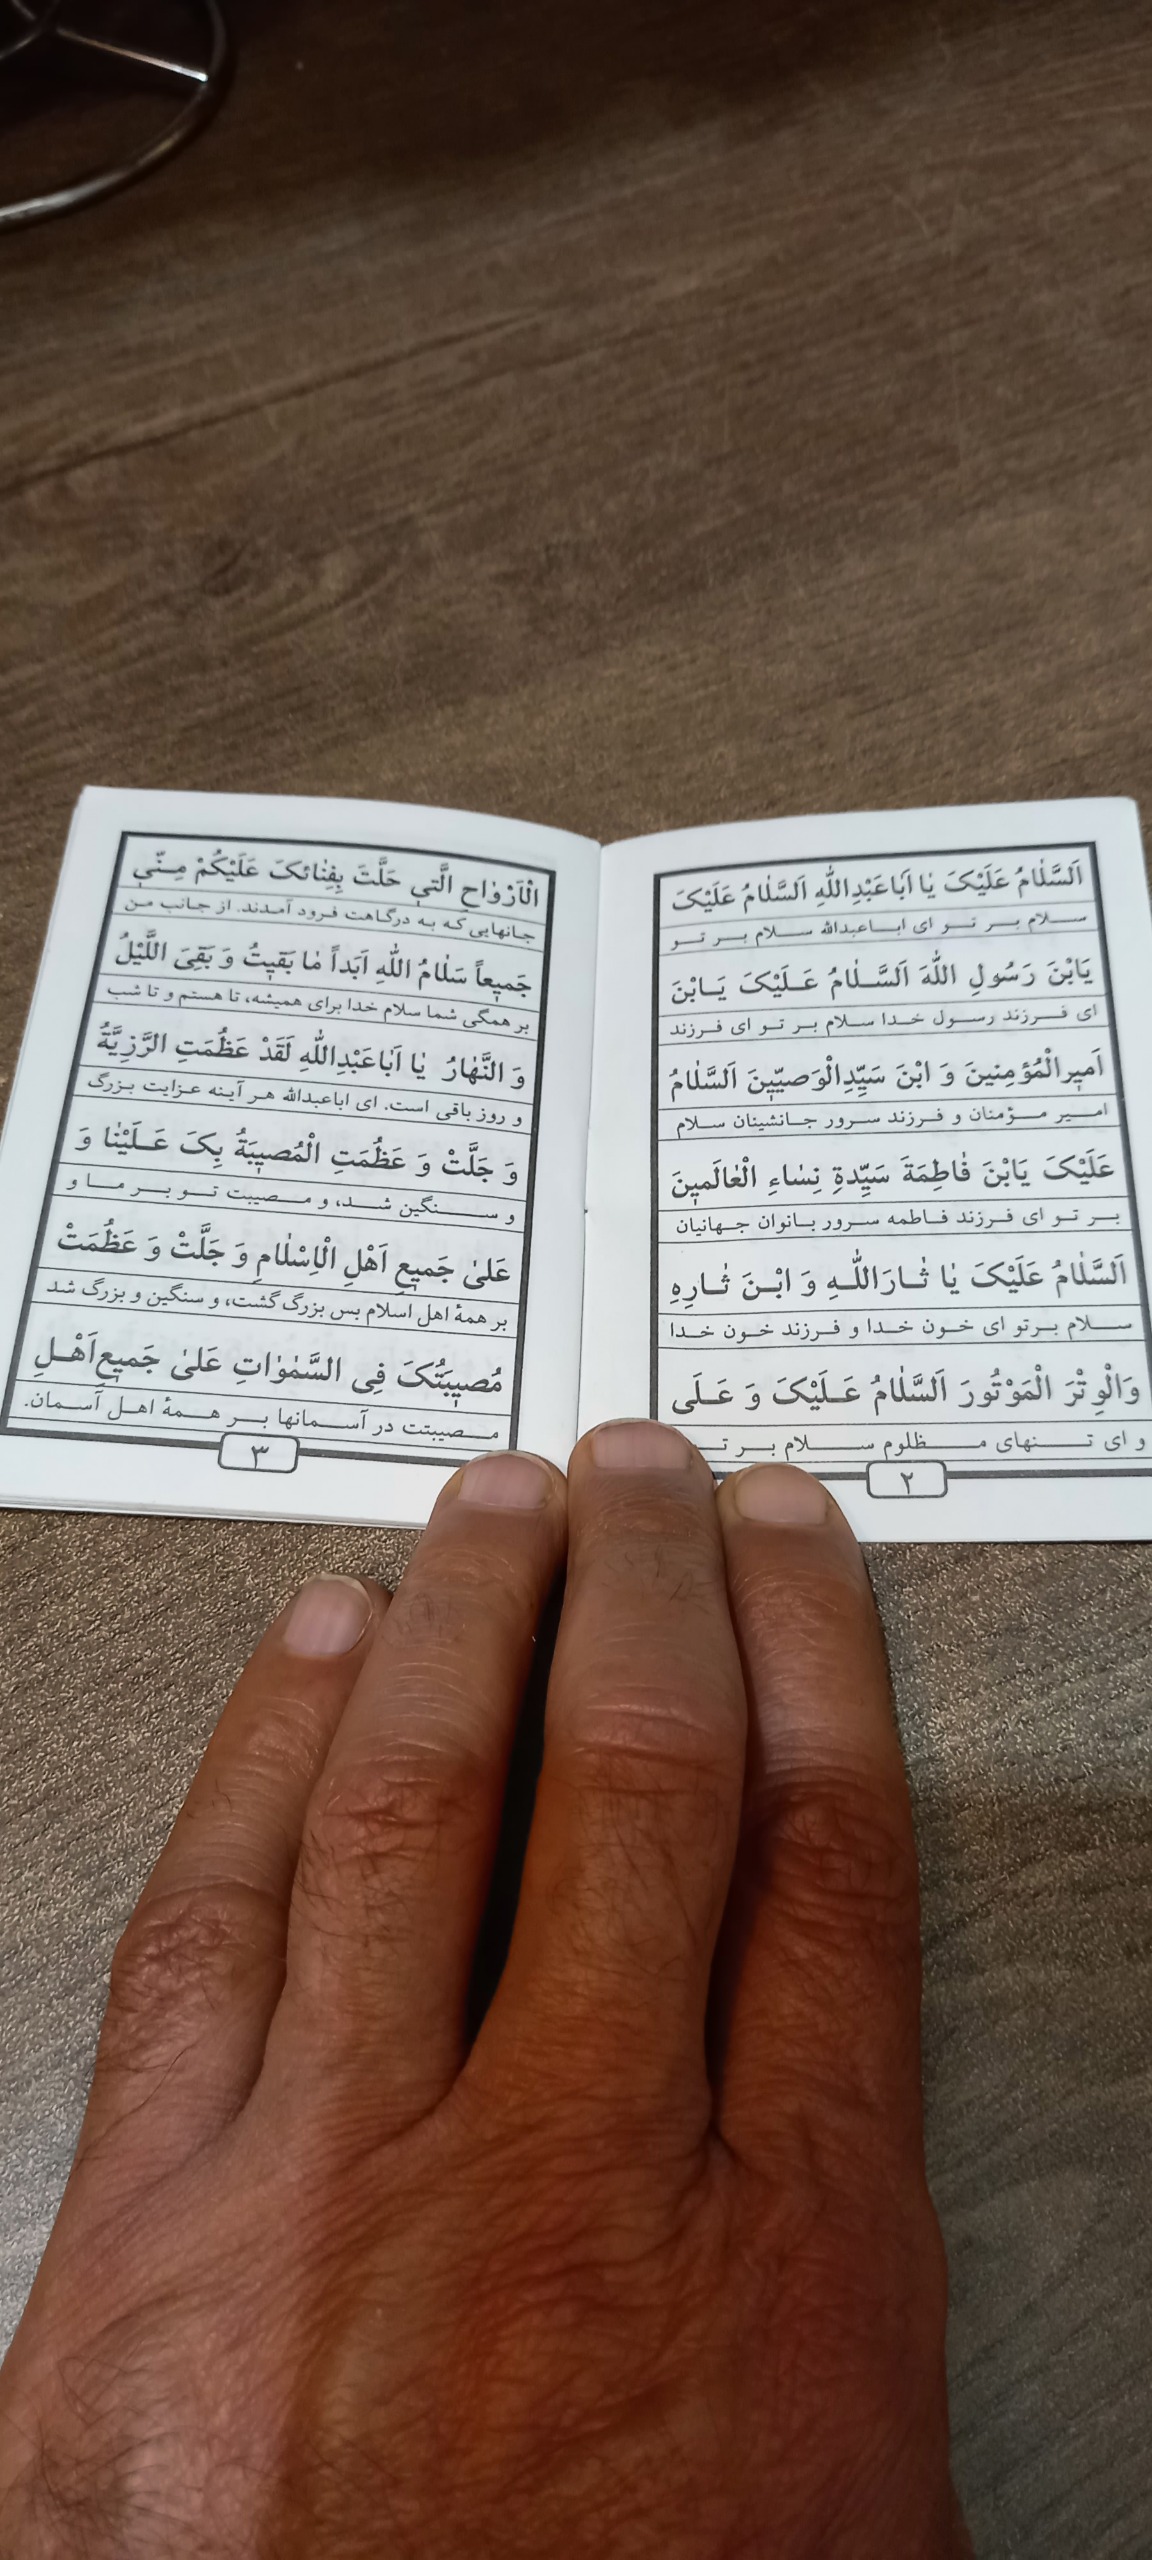 اَلسَّلٰامُ عَلَیْکَ یٰا اَبٰاعَبْدِاللّٰهِ اَلسَّلٰامُ عَلَیْکَ
سلام بر تو ای اباعبدالله سلام بر تو
یَابْنَ رَسُولِ اللّٰهَ اَلسَّلٰامُ عَلَیْکَ یَابْنَ
ای فرزند رسول خدا سلام بر تو ای فرزند
اَمیٖرِالْمُؤْمِنینَ وَ ابْنَ سَیِّدِالْوَصیّٖینَ اَلسَّلٰامُ
امیر مؤمنان و فرزند سرور جانشینان سلام
عَلَیْکَ یَابْنَ فٰاطِمَةَ سَیِّدةِ نِسٰاءِ الْعٰالَمیٖنَ
بر تو ای فرزند فاطمه سرور بانوان جهانیان
اَلسَّلٰامُ عَلَیْکَ یٰا ثٰارَاللّٰهِ وَ ابْنَ ثٰارِهِ
سلام برتو ای خون خدا و فرزند خون خدا
وَالْوِتْرَ الْمَوْتُورَ اَلسَّلٰامُ عَلَیْکَ وَ عَلَی
و ای تنهای مظلوم سلام بر
۲
الْاَرْوٰاحِ الَّتیٖ حَلَّتَ بِفِنٰائکَ عَلَیْکُمْ مِنّیٖ
جانهایی که به درگاهت فرود آمدند. از جانب من
جَمیٖعاً سَلٰامُ اللّٰهِ اَبَداً مٰا بَقیٖتُ وَ بَقِیَ اللَّیْلُ
بر همگی شما سلام خدا برای همیشه، تا هستم و تا شب
وَ النَّهٰارُ یٰا اَبٰاعَبْدِاللّٰهِ لَقَدْ عَظُمَتِ الرَّزِیَّةُ
و روز باقی است. ای اباعبدالله هر آینه عزایت بزرگ
وَ جَلَّتْ وَ عَظُمَتِ الْمُصیٖبَةُ بِکَ عَلَیْنٰا وَ
و سنگین شد، و مصیبت تو بر ما و
عَلیٰ جَمیٖعِ اَهْلِ الْاِسْلٰامِ وَ جَلَّتْ وَ عَظُمَتْ
بر همهٔ اهل اسلام بس بزرگ گشت، و سنگین و بزرگ شد
مُصیٖبَتُکَ فِی السَّمٰوٰاتِ عَلیٰ جَمیٖعِ اَهْلِ
مصیبتت در آسمانها بر همهٔ اهل آسمان.
۳